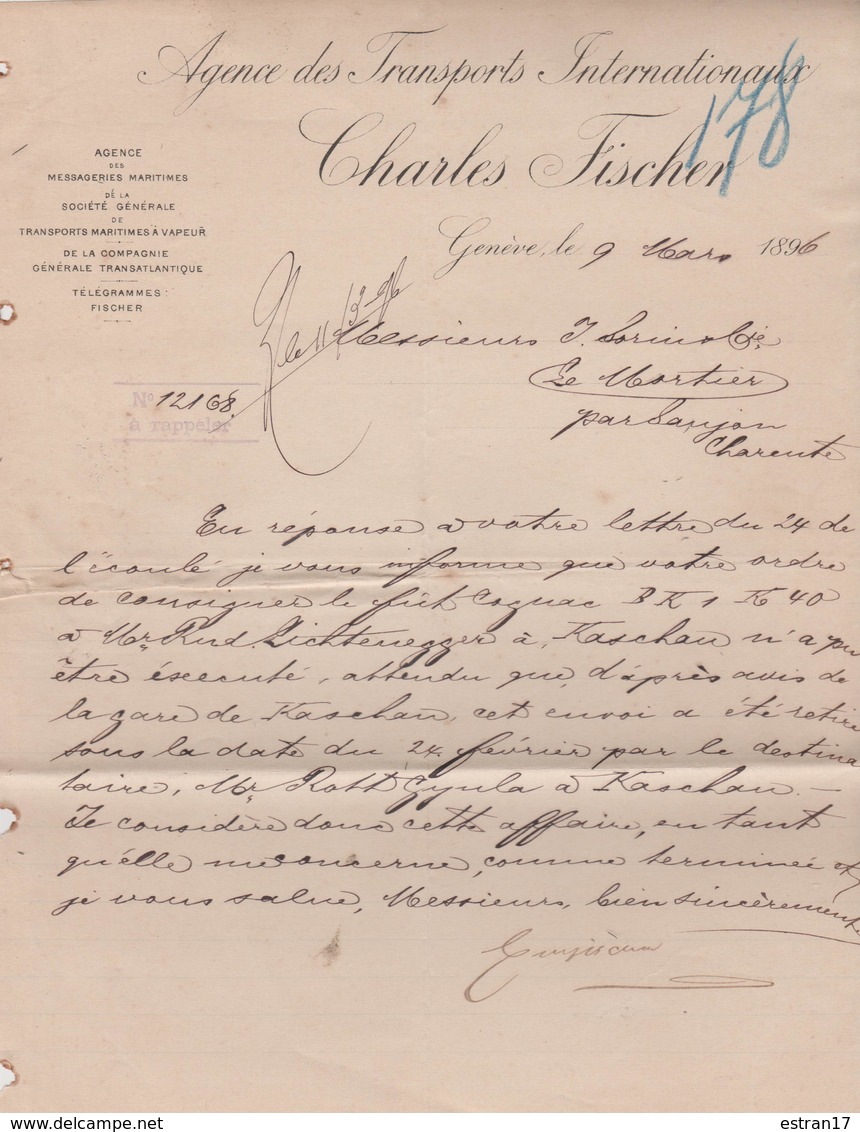 Agence des Transports Internationaux
178
Charles Fischer
AGENCE
DES
MESSAGERIES MARITIMES
DE LA
SOCIÉTÉ GÉNÉRALE
DE
TRANSPORTS MARITIMES À VAPEUR
DE LA COMPAGNIE
GÉNÉRALE TRANSATLANTIQUE
TÉLÉGRAMMES:
FISCHER
Genève, le 9 Mars 1896
le 11/3-96
Messieurs J. Sorin & Cie
Le Mortier
par Saujon
Charente
No 12168.
à rappeler
En réponse à votre lettre du 24 de
l'écoulé je vous informe que votre ordre
de consigner le fût Cognac BK 1 K 40
à Mr. Rud. Lichtenegger à Kaschau n'a pu
être éxécuté, attendu que, d'après avis de
la gare de Kaschau, cet envoi a été retiré
sous la date du 24 février par le destina
taire, Mr. Rott Gyula à Kaschau. —
Je considère donc cette affaire, en tant
qu'elle me concerne, comme terminée et
je vous salue, Messieurs, bien sincèrement
www.delcampe.net
estran17